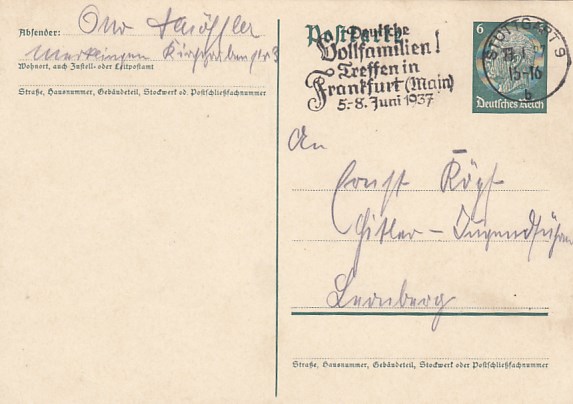 Absender: Otto
Wohnort, auch Zustell- oder Leitpostamt
Straße, Hausnummer, Gebäudeteil, Stockwerk od. Postschließfachnummer
Postkarte
Deutsche
Vollfamilien!
Treffen in
Frankfurt (Main)
5.-8. Juni 1937
STUTTGART 9
15-16
b
6
Deutsches Reich
An
Ernst Röpf
Hitler-Jugendführer
Leonberg
Straße, Hausnummer, Gebäudeteil, Stockwerk oder Postschließfachnummer